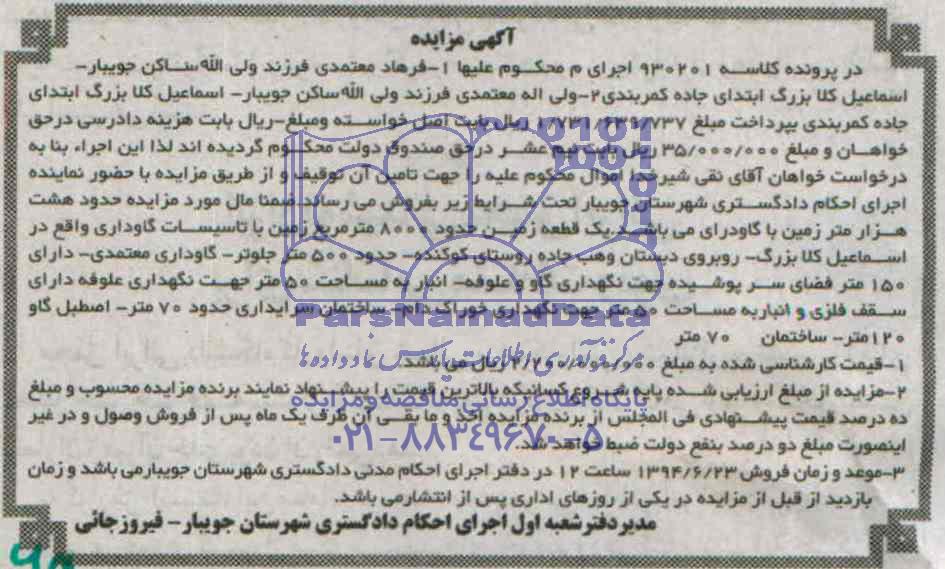 آگهی مزایده
در پرونده کلاسه ۹۳۰۲۰۱ اجرای م محکوم علیها ۱-فرهاد معتمدی فرزند ولی الله ساکن جویبار-
اسماعیل کلا بزرگ ابتدای جاده کمربندی۲-ولی اله معتمدی فرزند ولی الله ساکن جویبار- اسماعیل کلا بزرگ ابتدای
جاده کمربندی بپرداخت مبلغ ریال بابت اصل خواسته ومبلغ-ریال بابت هزینه دادرسی درحق
خواهان و مبلغ ۳۵/۰۰۰/۰۰۰ ریال بابت نیم عشر درحق صندوق دولت محکوم گردیده اند لذا این اجراء بنا به
درخواست خواهان آقای نقی شیرخدا اموال محکوم علیه را جهت تامین آن توقیف و از طریق مزایده با حضور نماینده
اجرای احکام دادگستری شهرستان جویبار تحت شرایط زیر بفروش می رساند. ضمنا مال مورد مزایده حدود هشت
هزار متر زمین با گاودرای می باشد.یک قطعه زمین حدود ۸۰۰۰ مترمربع زمین با تاسیسات گاوداری واقع در
اسماعیل کلا بزرگ- روبروی دبستان وهب جاده روستای کوکنده- حدود ۵۰۰ متر جلوتر- گاوداری معتمدی- دارای
۱۵۰ متر فضای سر پوشیده جهت نگهداری گاو و علوفه- انبار به مساحت ۵۰ متر جهت نگهداری علوفه دارای
سقف فلزی و انباربه مساحت ۵۰ متر جهت نگهداری خوراک دام- ساختمان سرایداری حدود ۷۰ متر- اصطبل گاو
۱۲۰متر- ساختمان ۷۰ متر
۱-قیمت کارشناسی شده به مبلغ ریال می باشد.
۲-مزایده از مبلغ ارزیابی شده پایه شروع کسانیکه بالاترین قیمت را پیشنهاد نمایند برنده مزایده محسوب و مبلغ
ده درصد قیمت پیشنهادی فی المجلس از برنده مزایده اخذ و ما بقی آن ظرف یک ماه پس از فروش وصول و در غیر
اینصورت مبلغ دو درصد بنفع دولت ضبط خواهد شد.
۳-موعد و زمان فروش ۱۳۹۴/۶/۲۳ ساعت ۱۲ در دفتر اجرای احکام مدنی دادگستری شهرستان جویبارمی باشد و زمان
بازدید از قبل از مزایده در یکی از روزهای اداری پس از انتشارمی باشد.
مدیردفترشعبه اول اجرای احکام دادگستری شهرستان جویبار- فیروزجائی
ParsNamadData
مرکز فرآوری اطلاعات پارس نماد داده ها
پایگاه اطلاع رسانی مناقصه ومزایده
۰۲۱-۸۸۳۴۹۶۷۰-۵